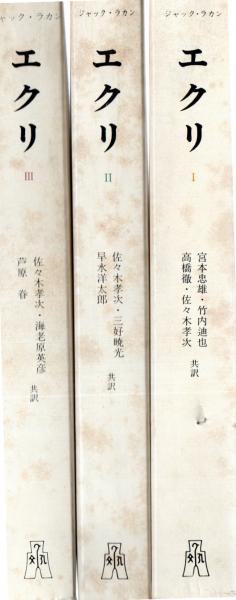 ジャック・ラカン
エクリ
I
宮本忠雄・竹内迪也
高橋徹・佐々木孝次
共訳
ジャック・ラカン
エクリ
II
佐々木孝次・三好暁光
早水洋太郎
共訳
ジャック・ラカン
エクリ
III
佐々木孝次・海老原英彦
芦原 眷
共訳